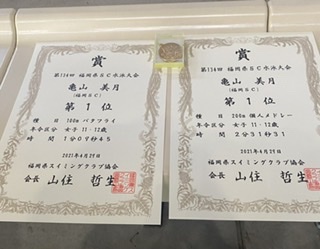 賞
第134回 福岡県SC水泳大会
亀山 美月
(福岡SC)
第1位
種目 100m バタフライ
年令区分 女子 11-12歳
時間 1分07秒45
2021年4月29日
福岡県スイミングクラブ協会
会長 山住 哲生
賞
第134回 福岡県SC水泳大会
亀山 美月
(福岡SC)
第1位
種目 200m 個人メドレー
年令区分 女子 11-12歳
時間 2分31秒31
2021年4月29日
福岡県スイミングクラブ協会
会長 山住 哲生